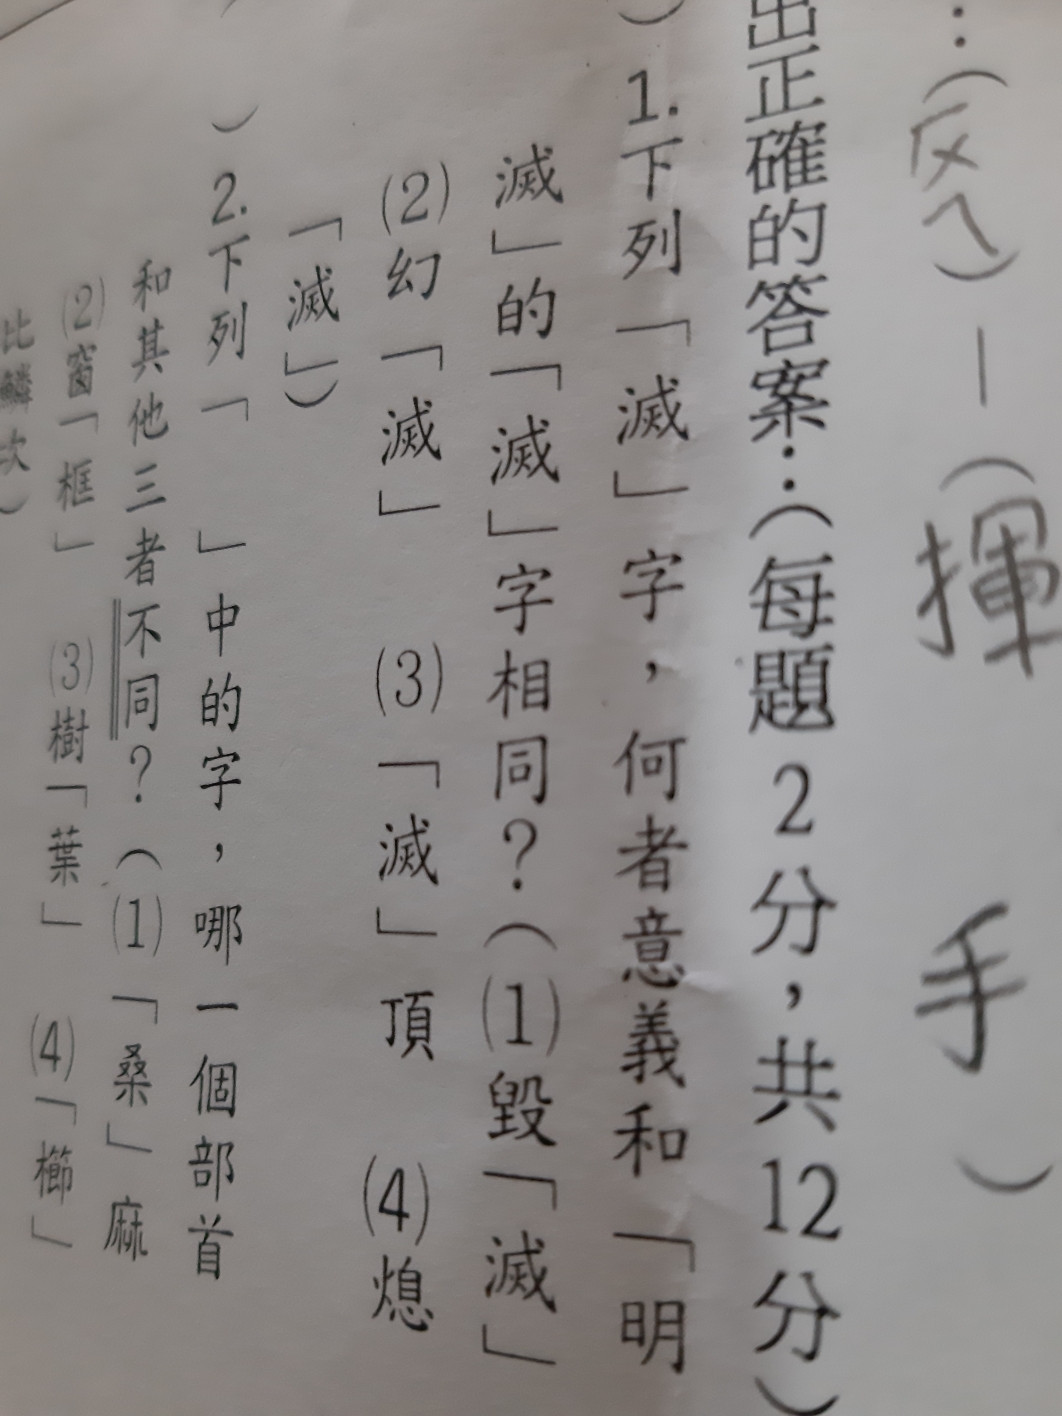 ：（反ㄟ）－（揮　手　）
出正確的答案：（每題2分，共12分）
）1.下列「滅」字，何者意義和「明
滅」的「滅」字相同？（⑴毀「滅」
⑵幻「滅」　⑶「滅」頂　⑷熄
「滅」）
）2.下列「　」中的字，哪一個部首
和其他三者不同？（⑴「桑」麻
⑵窗「框」　⑶樹「葉」　⑷「櫛」
比鱗次）